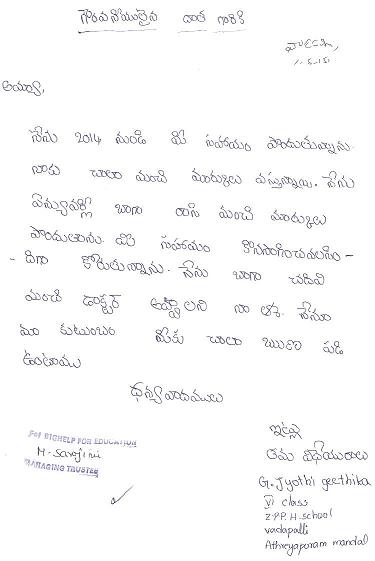 గౌరవనీయులైన దాత గారికి
అయ్యా,
నేను 2014 నుండి మీ సహాయం పొందుతున్నాను.
నాకు చాలా మంచి మార్కులు వస్తున్నాయి. నేను
బాగా రాసి మంచి మార్కులు
పొందుతాను. మీ సహాయం కొనసాగించవలసిం-
-దిగా కోరుతున్నాను. నేను బాగా చదివి
మంచి డాక్టర్ అవ్వాలని నా ఆశ. నేను
మా కుటుంబం మీకు చాలా ఋణ పడి
ఉంటాము
ధన్యవాదములు
ఇట్లు
తమ విధేయురాలు
G. Jyothi geethika
VI class
Z.P.P. H. school
vadapalli
Athreyapuram mandal
For BIGHELP FOR EDUCATION
M. Sarojini
MANAGING TRUSTEE